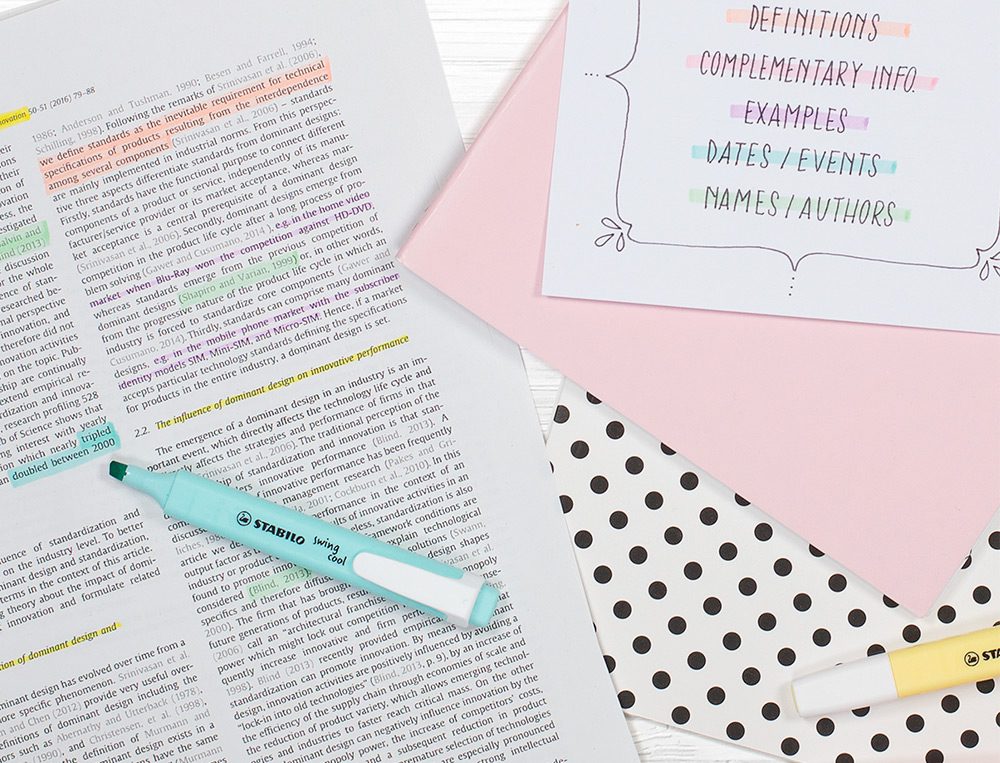 ovation 50-51 (2016) 79–88
investigated
alvin and
ind (2013)
discussion
the whole
nal perspective
innovation, and
therefore did not
on the topic. Pub-
ship are continually
dization and innova-
research profiling 528
of Science shows that
ing interest with yearly
on which nearly tripled
doubled between 2000
uence of standardization and
on the industry level. To better
minant design and standardization
in the context of this article.
ng theory about the impact of domi-
innovation and formulate related
tion of dominant design and
minant design has evolved over time from a
more specific phenomenon. Srinivasan et al.
nd Chen (2012) provide very useful over-
definitions of dominant design, including the
such as Abernathy and Utterback (1978),
(1990), and Christensen et al. (1998),
the definition of Murmann and
minant design exists in a
have the same
1986; Anderson and Tushman, 1990; Besen and Farrell, 1994;
Schilling, 1998). Following the remarks of Srinivasan et al. (2006),
we define standards as the inevitable requirement for technical
specifications of products resulting from the interdependence
among several components (Srinivasan et al., 2006) – standards
are mainly implemented in industrial norms. From this perspec-
tive three aspects differentiate standards from dominant designs:
Firstly, standards have the functional purpose to connect different
components of a product or service, independently of its manu-
facturer/service provider or its market acceptance, whereas mar-
ket acceptance is a central prerequisite of a dominant design
(Srinivasan et al., 2006). Secondly, dominant designs emerge from
competition in the product life cycle after a long process of pro-
blem solving (Gawer and Cusumano, 2014), e.g. in the home video
market when Blu-Ray won the competition against HD-DVD,
whereas standards emerge from the previous competition of
dominant designs (Shapiro and Varian, 1999) in other words,
from the progressive nature of the product life cycle in which an
industry is forced to standardize core components (Gawer and
Cusumano, 2014). Thirdly, standards can comprise many dominant
designs, e.g. in the mobile phone market with the subscriber
identity models SIM, Mini-SIM, and Micro-SIM. Hence, if a market
accepts particular technology standards defining the specifications
for products in the entire industry, a dominant design is set.
2.2. The influence of dominant design on innovative performance
The emergence of a dominant design in an industry is an im-
portant event, which directly affects the technology life cycle and
affects the strategies and performance of firms in that
nivasan et al., 2006). The traditional perception of the
of standardization and innovation is that stan-
ers innovative performance (Blind, 2013). A
novative performance has been frequently
management research (Pakes and Gri-
2001; Cockburn et al., 2010). In this
performance in the context of an
ults of innovative activities in an
less, standardization is also
ework conditions are
explain technological
solutions (Swann,
design shapes
asan et al.,
output
industry or product
found to promote
considered (Blind, 2013)
specifics and therefore
2000). The firm that has brought
future generations of products,
(2006) can an "architectural franchise
power which might lock out competition
quently increase innovative and firm perform
1998). Blind (2013) recently provided empirical
dardization can promote innovation. By means
design, innovation activities are positively influenced by avoiding a
"lock-in into old technologies" (Blind, 2013, p. 9), by an increase of
the efficiency of the supply chain through economies of scale and
the reduction of product variety, which allows emerging technol-
ogies and industries to faster reach critical mass. On the other
dominant design can negatively influence innovation by the
nopoly power, the increase of competitors' costs,
and a subsequent reduction in product
mature selection of technology
especially pronounced
intellectual
STABILO swing
cool
DEFINITIONS
COMPLEMENTARY INFO.
EXAMPLES
DATES / EVENTS
NAMES / AUTHORS
STA